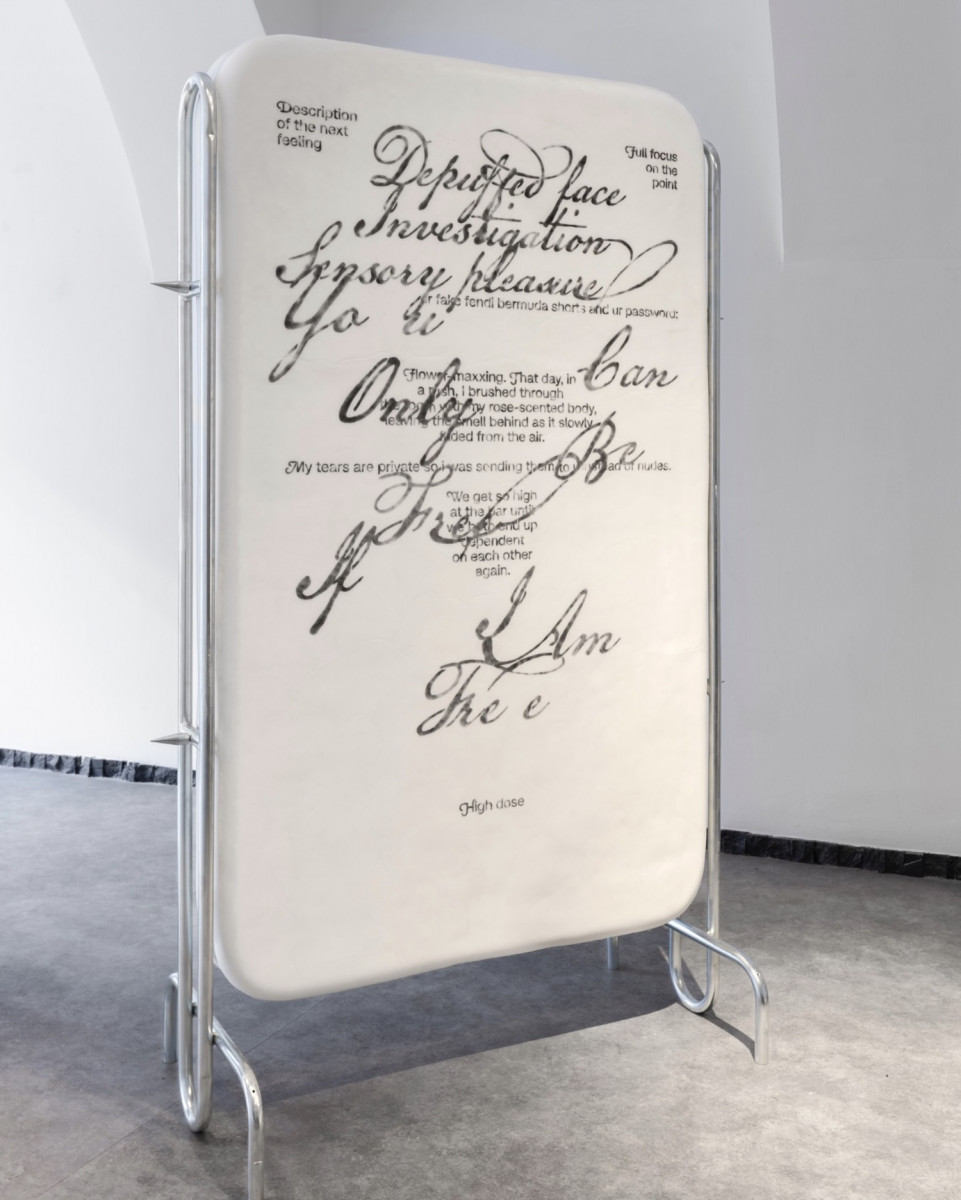 Description
of the next
feeling
Full focus
on the
point
Depuffed face
Investigation
Sensory pleasure
ur fake fendi bermuda shorts and ur password:
Yo u
Can
Only
Flower-maxxing. That day, in
a rush, i brushed through
the room with my rose-scented body,
leaving the smell behind as it slowly
faded from the air.
Be
My tears are private so i was sending them to u instead of nudes.
Free
We get so high
at the bar until
we both end up
dependent
on each other
again.
If
I Am
Fre e
High dose